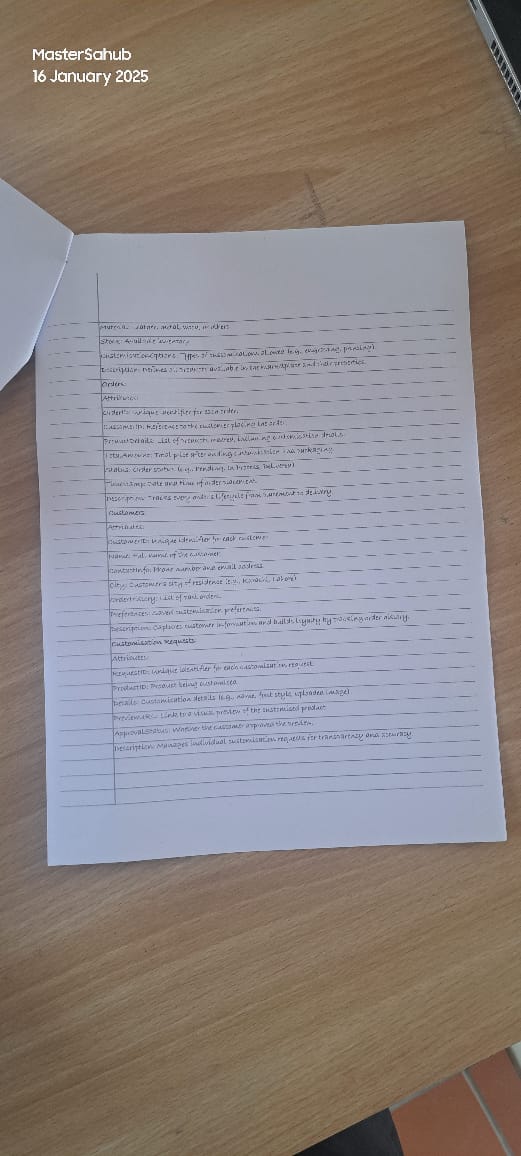 MasterSahub
16 January 2025
Material: Leather, metal, wood, or others
Stock: Available inventory
CustomisationOptions: Types of customisations allowed (e.g., engraving, printing).
Description: Defines all products available in the marketplace and their properties.
Orders
Attributes:
OrderID: Unique identifier for each order.
CustomerID: Reference to the customer placing the order.
ProductDetails: List of products ordered, including customisation details.
TotalAmount: Total price after adding customisation and packaging
Status: Order status (e.g., Pending, In Process, Delivered)
Timestamp: Date and time of order placement.
Description: Tracks every order's lifecycle from placement to delivery.
Customers
Attributes:
CustomerID: Unique identifier for each customer
Name: Full name of the customer.
ContactInfo: Phone number and email address
City: Customer's city of residence (e.g., Karachi, Lahore)
OrderHistory: List of past orders.
Preferences: Saved customisation preferences.
Description: Captures customer information and builds loyalty by tracking order history.
Customisation Requests
Attributes:
RequestID: Unique identifier for each customisation request
ProductID: Product being customised
Details: Customisation details (e.g., name, font style, uploaded image)
PreviewURL: Link to a visual preview of the customised product
ApprovalStatus: Whether the customer approved the preview.
Description: Manages individual customisation requests for transparency and accuracy